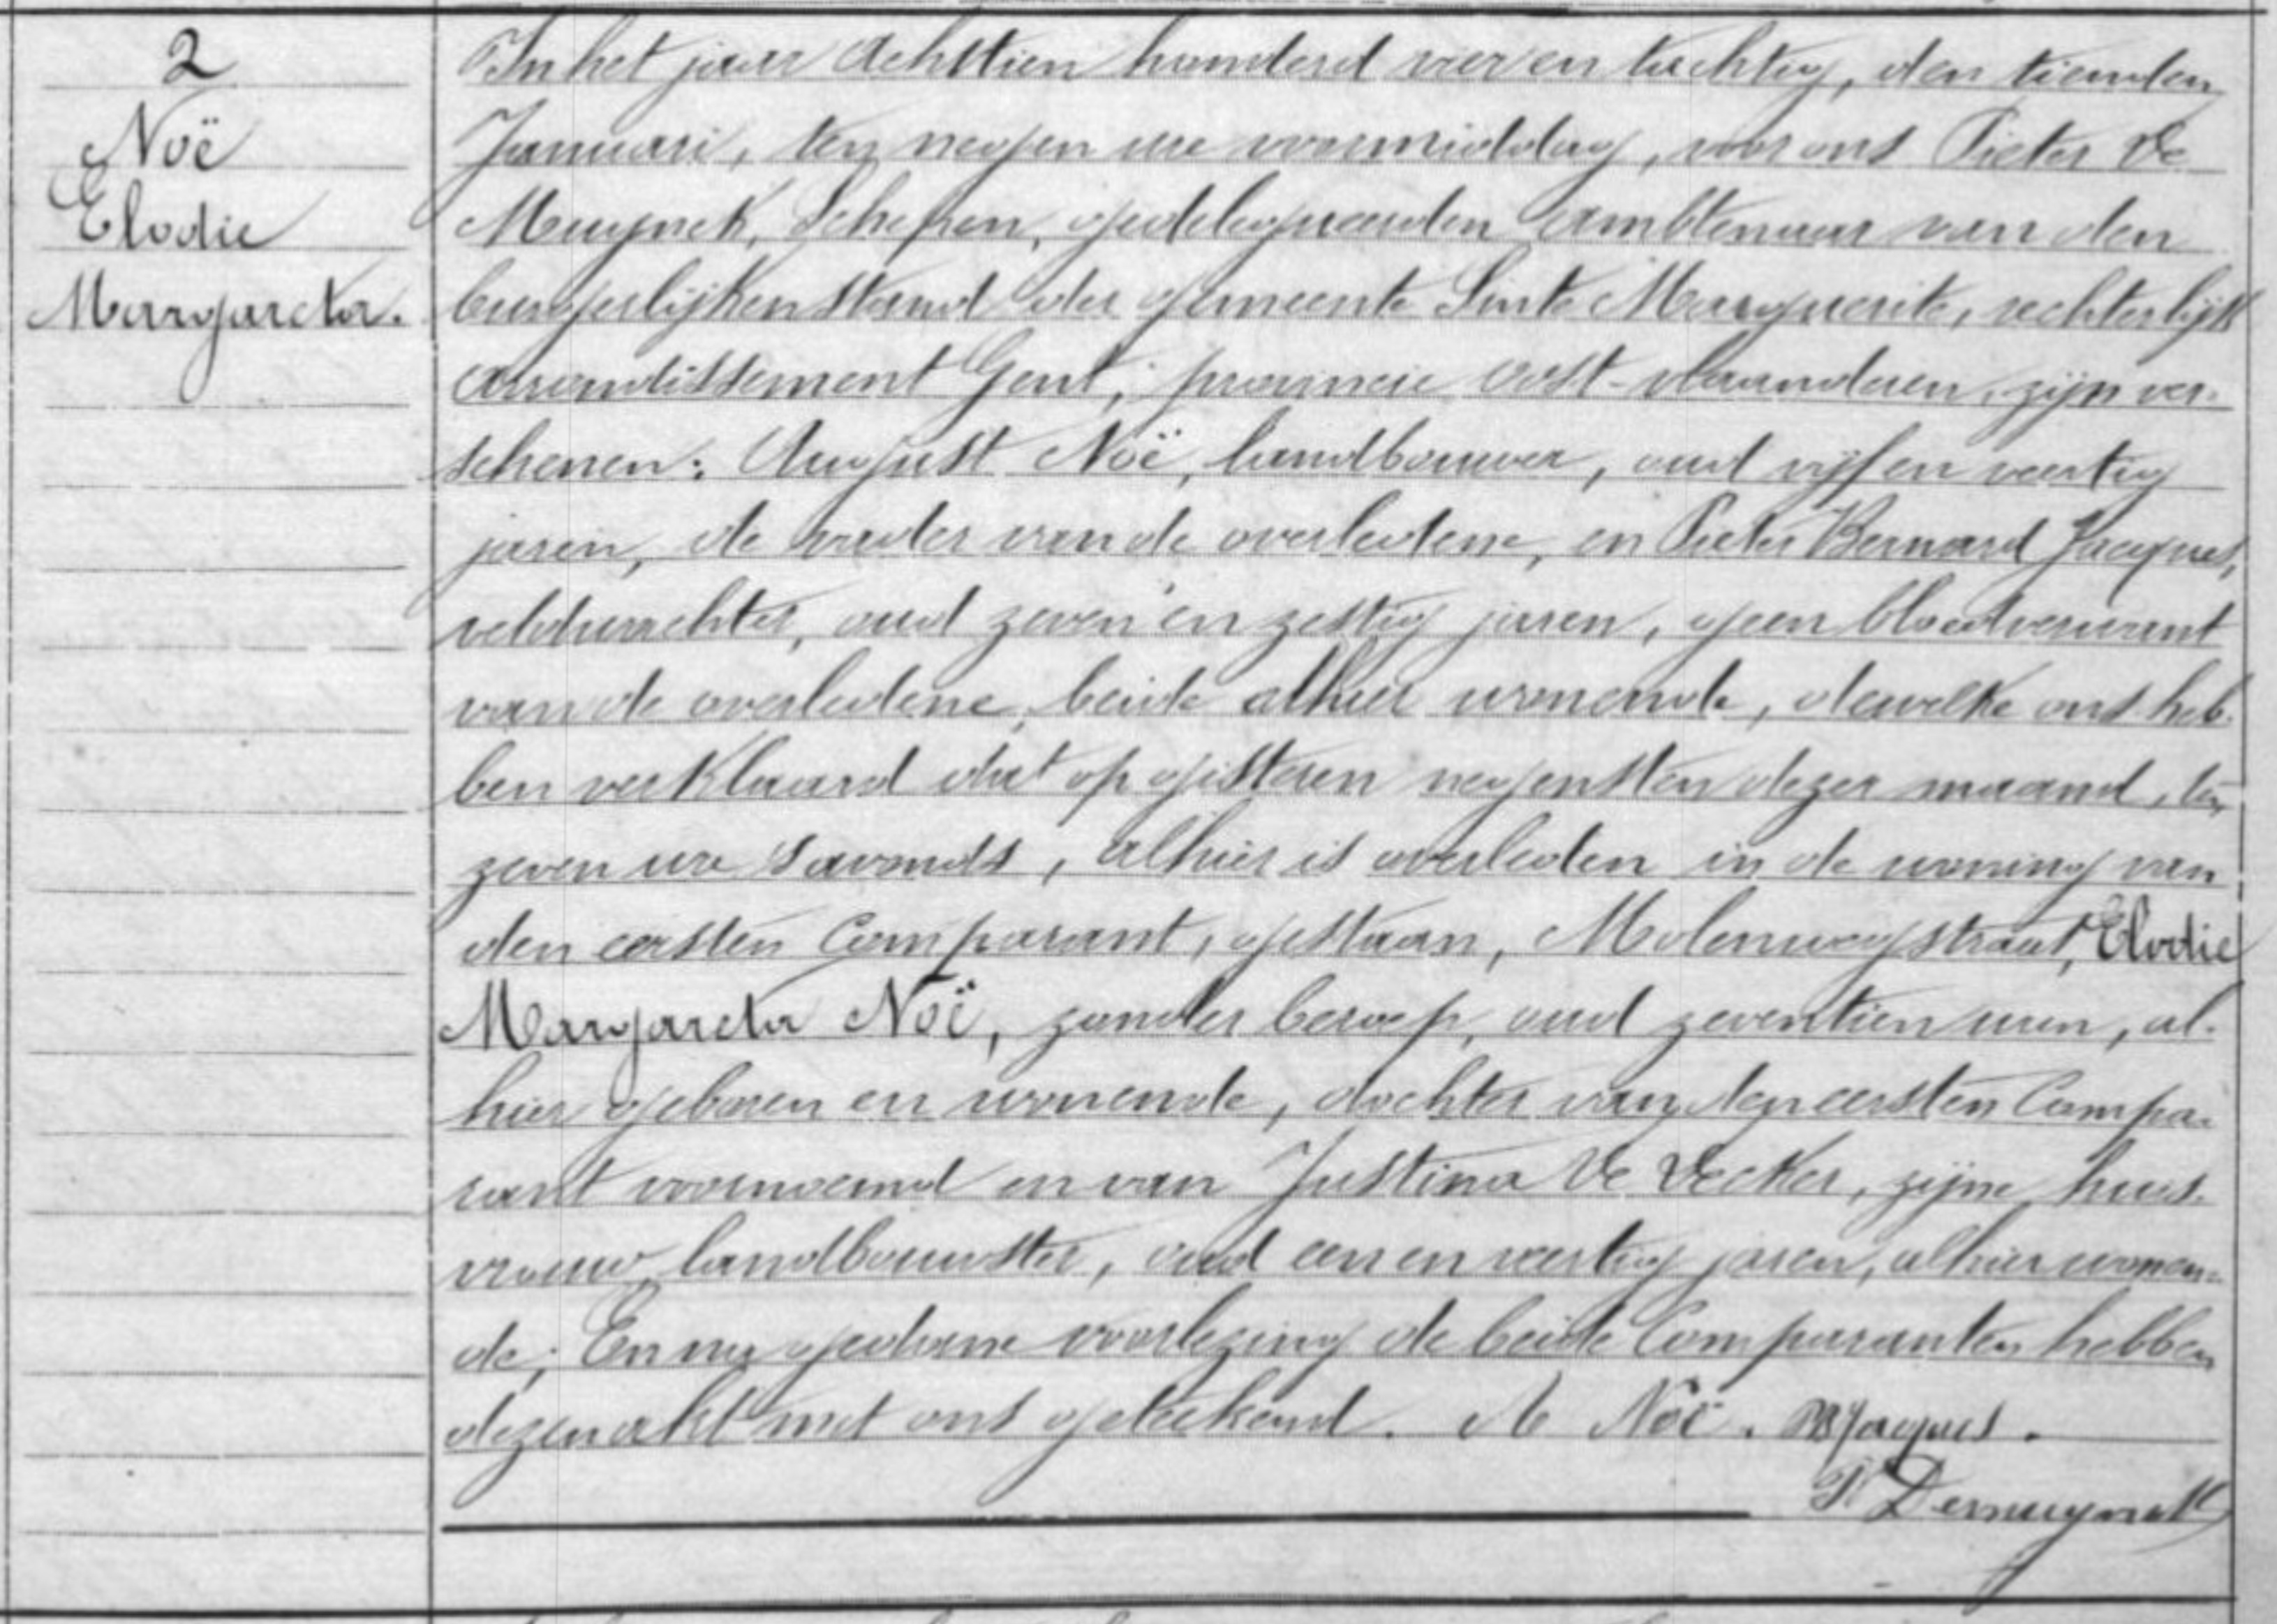 2
Noë
Elodie
Margareta.
In het jaar achttien honderd vier en tachtig, den tienden
Januari, ten negen ure voormiddag, voor ons Pieter De
Muynck, Schepen, gedelegueerden ambtenaar van den
burgerlijken stand der gemeente Sinte Marguerite, rechterlijk
arrondissement Gent, provincie oost-vlaanderen, zijn ver-
schenen: August Noë, landbouwer, oud vijf en veertig
jaren, de vader van de overledene, en Pieter Bernard Jacques,
veldwachter, oud zeven en zestig jaren, geen bloedverwant
van de overledene, beide alhier wonende, dewelke ons heb-
ben verklaard dat op gisteren negensten dezer maand, ten
zeven ure savonds, alhier is overleden in de woning van
den eersten Comparant, gestaan, Molenwegstraat, Elodie
Margareta Noë, zonder beroep, oud zeventien uren, al-
hier geboren en wonende, dochter van den eersten Compa-
rant voornoemd en van Justina De Decker, zijne huis-
vrouw, landbouwster, oud een en veertig jaren, alhier wonen-
de; En na gedane voorlezing de beide Comparanten hebben
dezen akt met ons geteekend. A Noë. PB Jacques.
P Demuynck